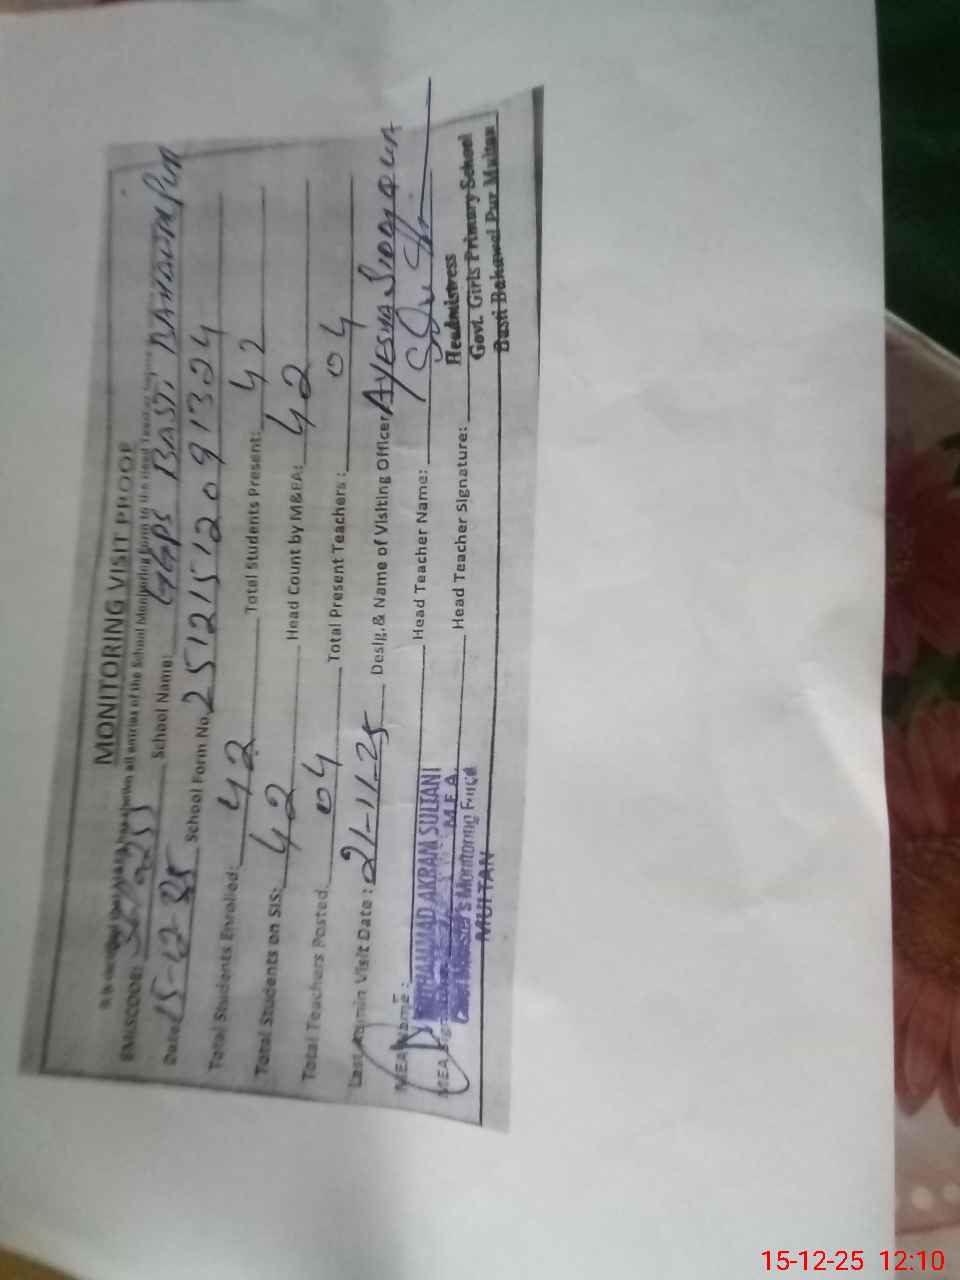 MONITORING VISIT PROOF
all entries of the School Monitoring Form to the Head Teacher
EMISCODE: School Name: GGPS BASTI BAHAWALPUR
Date: 15-12-25 School Form No. 2512151209 91324
Total Students Enrolled: 42 Total Students Present: 42
Total Students on SIS: 42 Head Count by M&EA: 42
Total Teachers Posted: 04 Total Present Teachers: 04
Last Admin Visit Date: 21-11-25 Desig. & Name of Visiting Officer AYESHA SIDDIQUA
MEA Name: MUHAMMAD AKRAM SULTANI Head Teacher Name:
MEA M.E.A Head Teacher Signature:
Chief Minister's Monitoring Force
MULTAN
Headmistress
Govt. Girls Primary School
Basti Bahawal Pur Multan
15-12-25 12:10